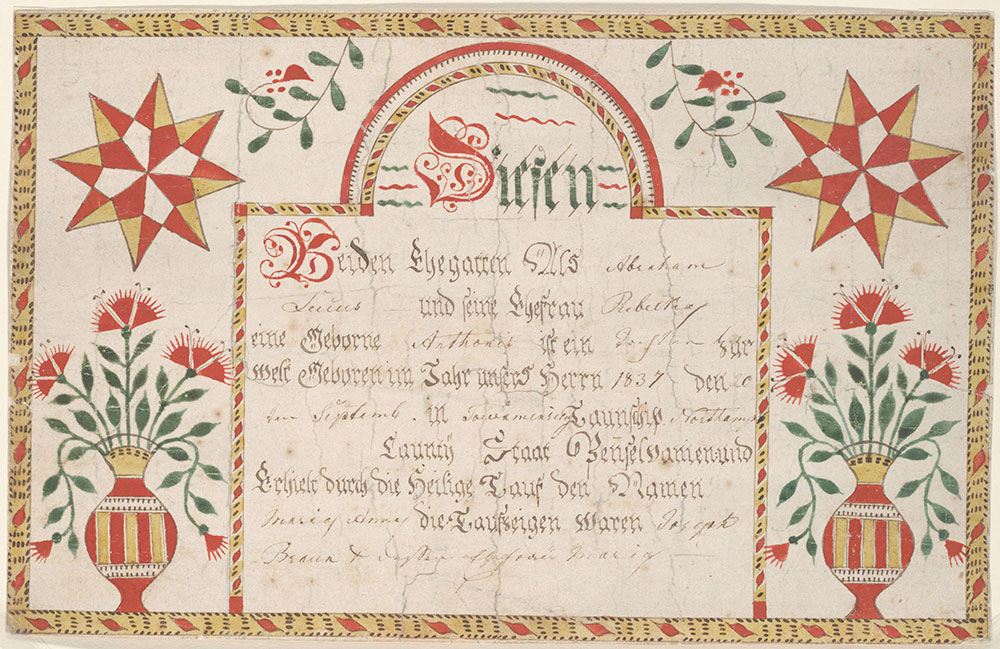 Diesen
Beiden Ehegatten Als Abraham
und seine Ehefrau Rebekka
eine Geborne Anthoni ist ein Tochter Zur
Welt Geboren im Jahr unsers Herrn 1837 den 20
ten Septemb. in Towamensing Taunschip Northam
Caunty Staat Pennselvanien und
Erhielt durch die Heilige Tauf den Namen
Maria Anna die Taufzeigen Waren Joseph
Braun & Ehefrau Maria